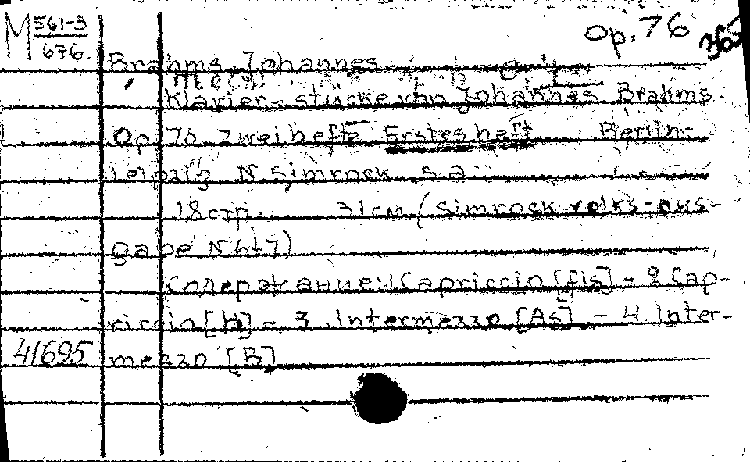 M 561-3 Op. 76
676.
Brahms, Johannes
Klavier-stücke von Johannes Brahms.
Op. 76. Zwei hefte Erstes heft Berlin-
Leipzig N. Simrock s.a.
18 стр. 31 см. (Simrock volks-aus-
gabe N 447)
Содержание: 1 Capriccio [fis] - 2 Cap-
riccio [H] - 3. Intermezzo [As] - 4 Inter-
41695 mezzo [B]